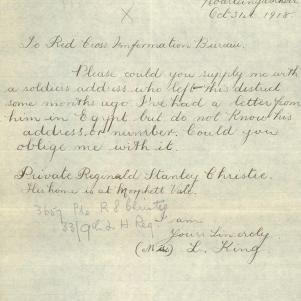 Noarlunga
Oct 31st 1918.
To Red Cross Information Bureau.
Please could you supply me with
a soldiers address who left this district
some months ago I've had a letter from
him in Egypt but do not know his
address, or number. Could you
oblige me with it.
Private Reginald Stanley Christie.
His home is at Morphett Vale.
3667 Pte R S Christie
I am
Yours Sincerely
(Miss) L. King